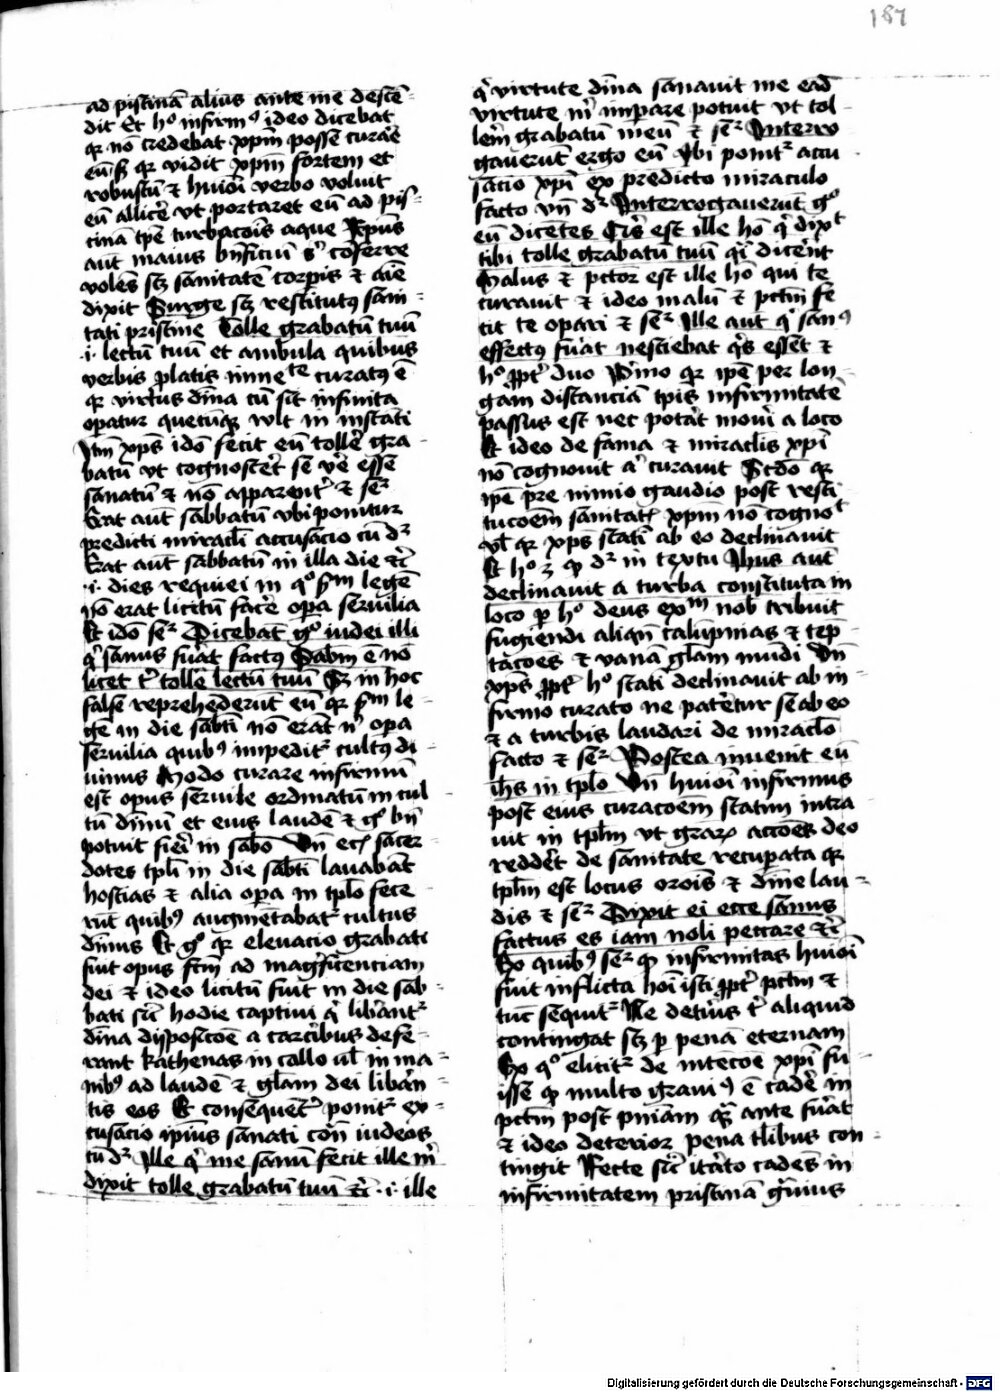 187
ad pistinā alius ante me descē-
dit Et hº infirmꝰ ideo dicebat
qr nō credebat xpm̄ posse curare
eū s̄ qr vidit xpm̄ fortem et
robustū ⁊ huiōi verbo voluit
eū allicē vt portaret eū ad pis-
cinā tpe turbacōis aque Xpūs
aūt maius bn̄ficiū s' cōferre
volēs scz sanitatē corpis ⁊ aīe
dixit Surge scz restitutꝰ sani-
tati pristine Tolle grabatū tuū
·i· lectū tuū et ambula quibus
verbis platis inne te curatꝰ ē
qr virtus dīna cū sit infinita
opatur quecūqz vult in instāti
Itm̄ xps idō fecit eū tollē gra-
batū vt cognoscēt se vē esse
sanatū ⁊ nō apparent' ⁊ se'
Erat aūt sabbatū vbi ponitur
predicti miracli accusacio cū d'
Erat aūt sabbatū in illa die ⁊c̄
·i· dies requiei in qº s'm legē
nō erat licitū facē opa servilia
Et idō se' Dicebāt gº iudei illi
q' sanus fūat factus Sabm̄ ē nō
licet t' tollē lectū tuū Sz in hoc
false reprehēderūt eū qr s'm le-
gē in die sabti nō erāt n' opa
servilia quibꝰ impedit' cultꝰ di-
uinus Modo curare infirmū
est opus servile ordinatū in cul
tū dīnū et eius laudē ⁊ gº bn̄
potuit fieri in sabō Vn̄ eci sacer
dotes tpli in die sabti lavabāt
hostias ⁊ alia opa in tplo fece
rūt quibꝰ augmētabat' cultus
dīnus Et gº qr elevacio grabati
fuit opus fc̄m ad magficenciam
dei ⁊ ideo licitū fuit in die sab-
bati sic̄ hodie captiui q' libānt'
dīna disposicōe a carcibus defe-
rant kathenas in collo vl' in ma-
nibꝰ ad laudē ⁊ gl̄am dei libān-
tis eos Et consequēt' ponit' ex-
cusacio ipīus sanati con̄ iudeos
cū d' Ille q' me sanū fecit ille m'
dixit tolle grabatū tuū ⁊c̄ ·i· ille
q' virtute dīna sanauit me eād
virtute m' impare potuit vt tol-
lem̄ grabatū meū ⁊ se' Interro
gauerūt ergo eū Vbi ponit' accu
sacio xpi ex predicto miraculo
facto vn̄ d' Interrogauerūt gº
eū dicētes Q's est ille hō q' dixt
tibi tolle grabatū tuū q'i dicēnt
Malus ⁊ pctor est ille hō qui te
curauit ⁊ ideo malū ⁊ pctm̄ fe
cit te opari ⁊ se' Ille aūt q' sanꝰ
effectꝰ fūat nesciebat q's essēt ⁊
hº ppt' duo Pimo qr ipē per lon
gam distanciā tpis infirmitatē
passus est nec potāt moui a loco
Et ideo de fama ⁊ miraclis xpi
nō cognouit a' curauit Scdo qr
ipē pre nimio gaudio post resti
tucoem̄ sanitat' xpm̄ nō cognot
vl' qr xps stati ab eo declinauit
Et hº ꝫ qd d' in textu Ihūs aūt
declinauit a turba constituta in
loco p hº deus exm̄ nob tribuit
fugiendi aliqn̄ calūpnias ⁊ tep-
tācoes ⁊ vanā gl̄am mūdi Vn̄
xps ppt' hº stati declinauit ab in-
firmo curato ne patētur se ab eo
⁊ a turbis laudari de miraclo
facto ⁊ se' Postea inuenit eū
ihs in tplo Vn̄ huiōi infirmus
post eius curacoem statim intra
uit in tplm̄ vt graꝝ accōes deo
reddēt de sanitate recupata qr
tplm̄ est locus oroīs ⁊ dīne lau-
dis ⁊ se' Dixit ei ecce sanus
factus es iam noli peccare ⁊c̄
Ex quibꝰ se' qd infirmitas huiōi
fuit inflicta hoī isti ppt' pctm̄ ⁊
tūc sequit' Ne detiꝰs t' aliquid
contingat scz p penā eternam
Ex qº elicit' de intēcōe xpi fu
isse qd multo grauiꝰ ē cadē in
pctm̄ post pniam q̄ ante fūat
⁊ ideo deterior pena tlibus con-
tingit Recte sic̄ itāto cadēs in
infirmitatem pristinā g'uius
Digitalisierung gefördert durch die Deutsche Forschungsgemeinschaft - DFG